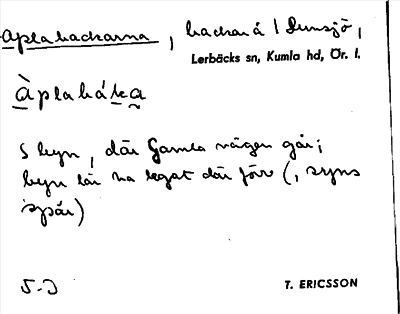 Aplabackarna, backar å 1 Dunsjö,
Lerbäcks sn, Kumla hd, Ör. l.
Àplabáka
S byn, där Gamla vägen går;
byn lär ha legat där förr (, syns
spår)
5-3
T. ERICSSON